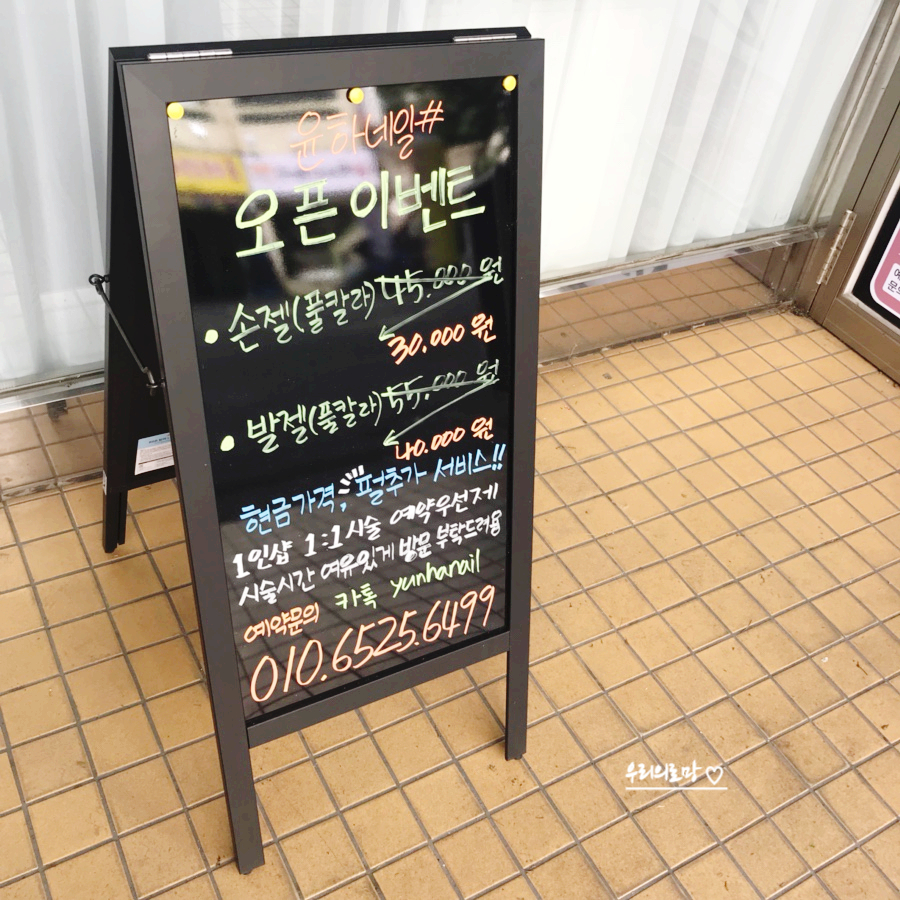 윤하네일#
오픈 이벤트
• 손젤(풀칼라) 45.000 원
30.000 원
• 발젤(풀칼라) 55.000 원
40.000 원
현금가격, 펄추가 서비스!!
1인샵 1:1시술 예약우선제
시술시간 여유있게 방문 부탁드려용
예약문의 카톡 yunhanail
010.6525.6499
우리의로망♡